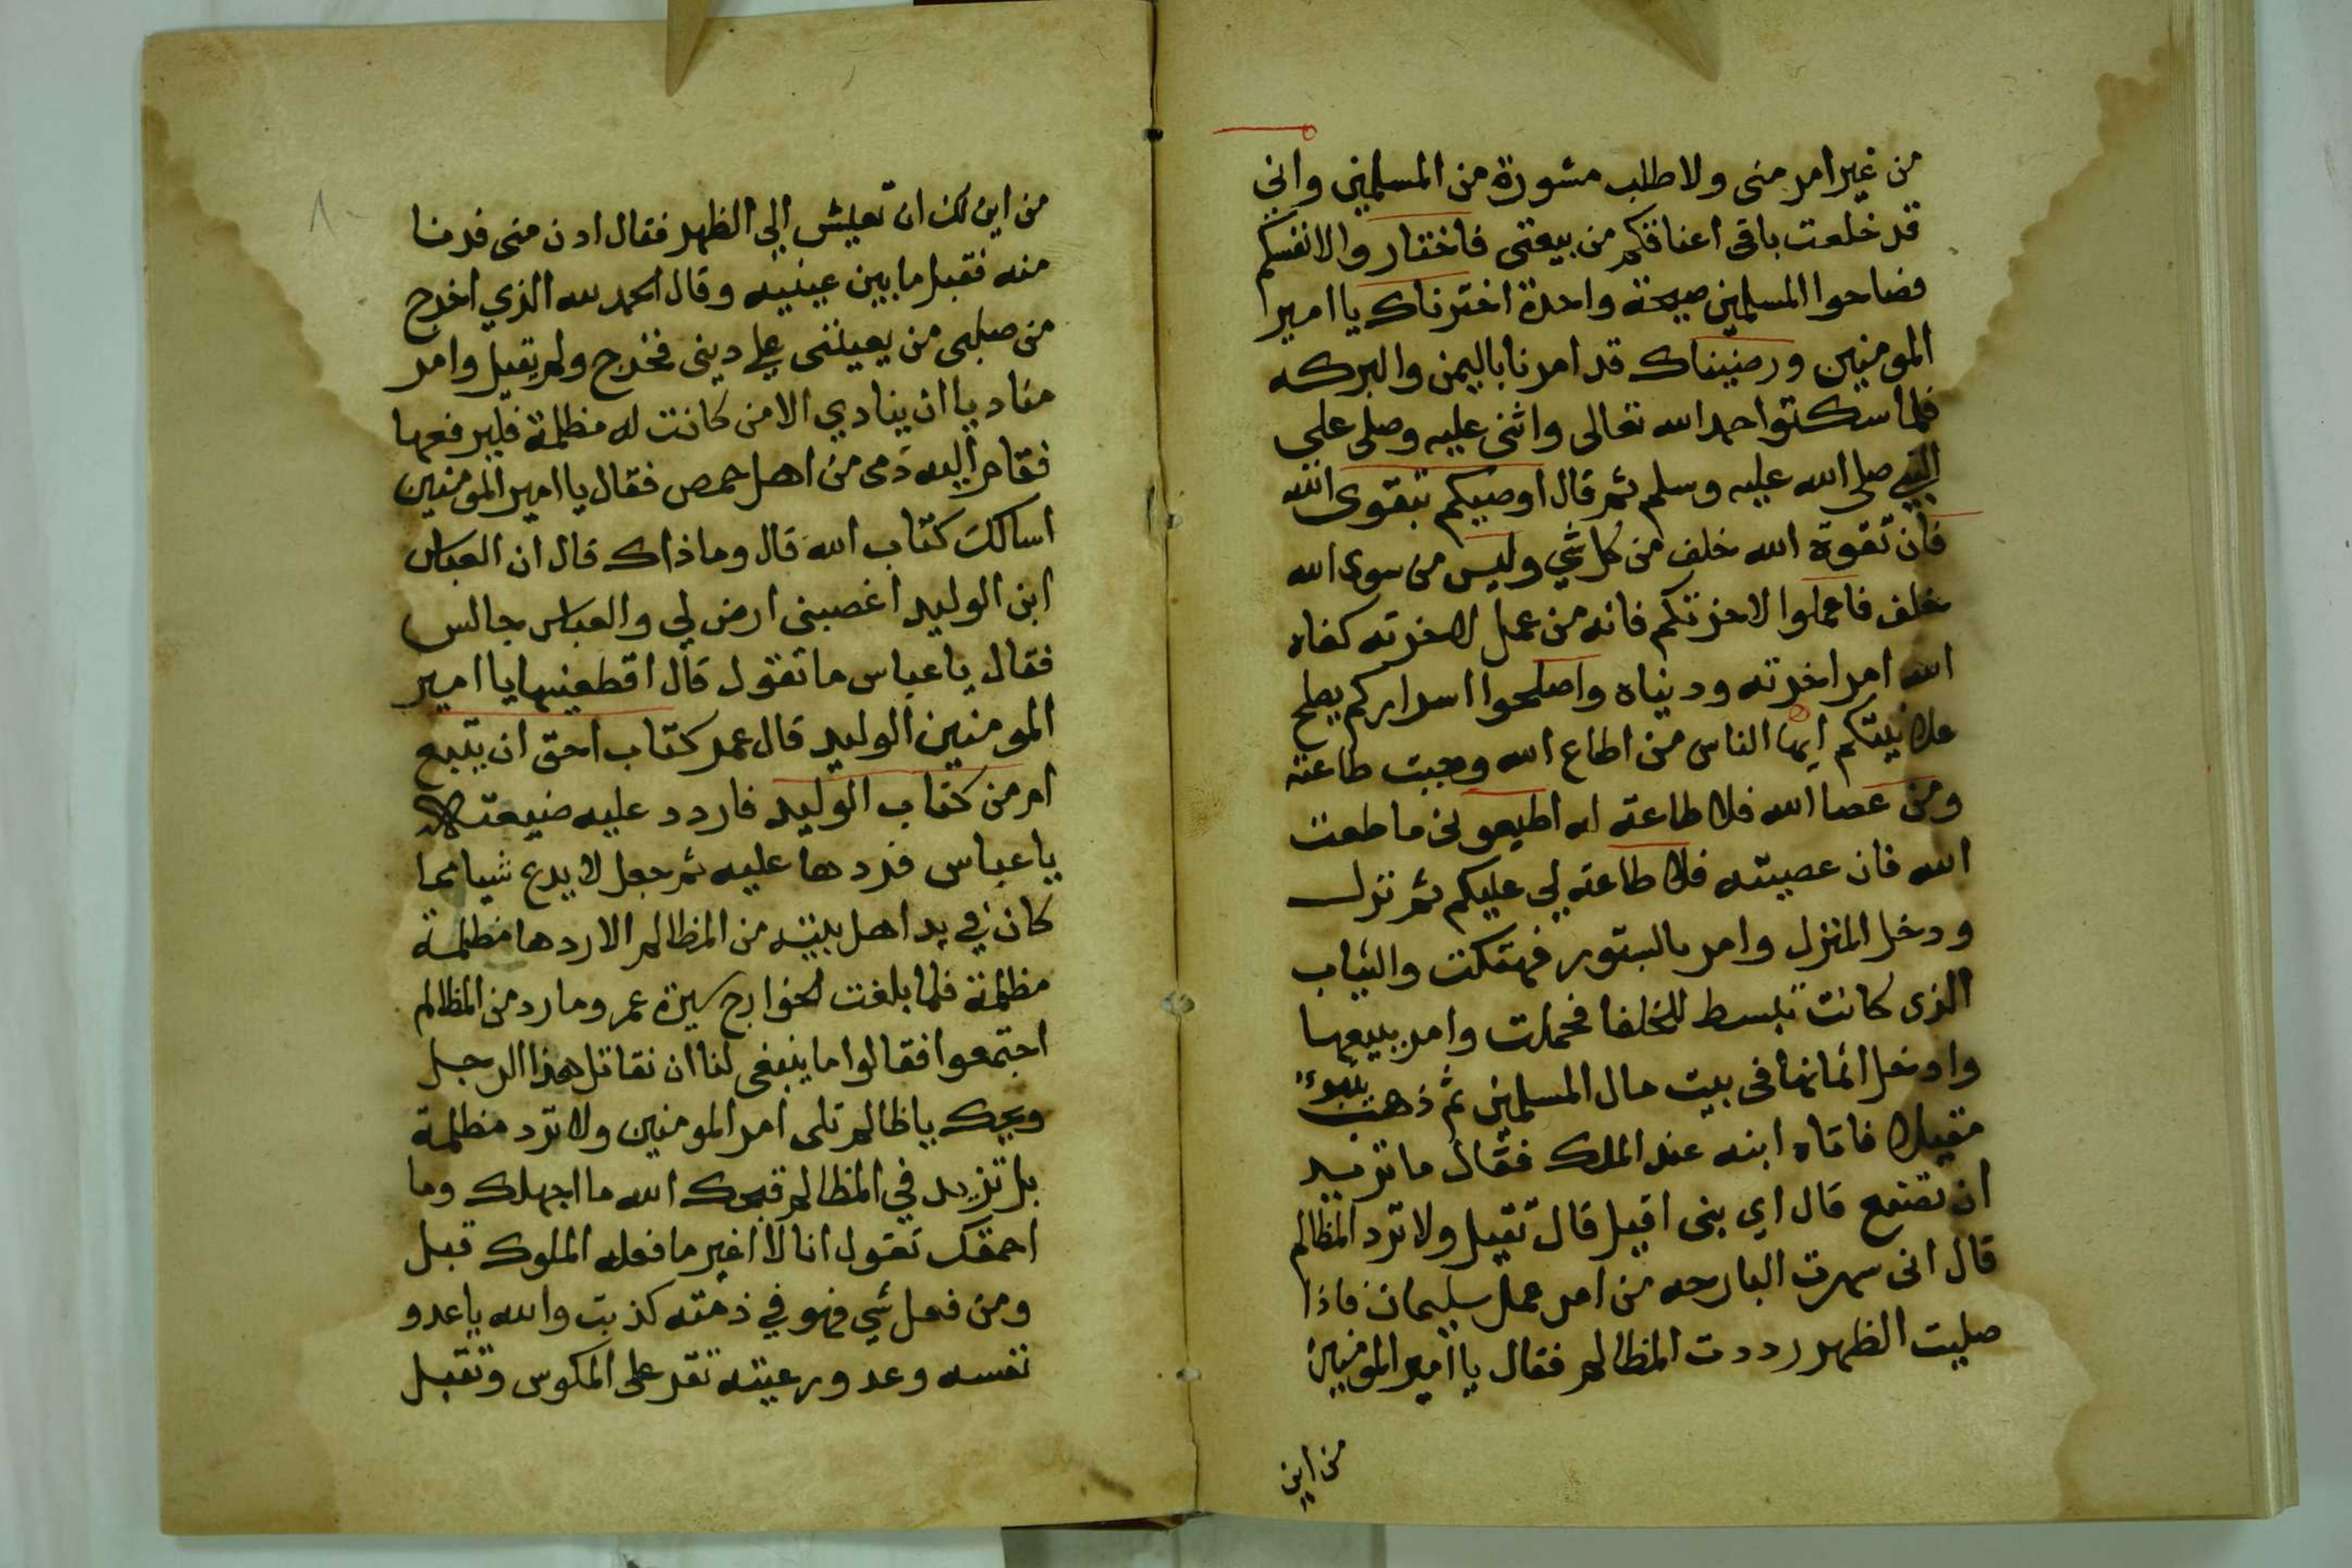 من غير امر مني ولا طلب مشورة من المسلمين واني
قد خلعت باقي اعناقكم من بيعتي فاختاروا لانفسكم
فصاحوا المسلمين صيحة واحدة اخترناك يا امير
المومنين ورضيناك قد امرنا باليمن والبركه
فلما سكتوا حمد الله تعالى واثنى عليه وصلى على
النبي صلى الله عليه وسلم ثم قال اوصيكم بتقوى الله
فان تقوة الله خلف من كل شي وليس من سوى الله
خلف فاعملوا لاخرتكم فانه من عمل لاخرته كفاه
الله امر اخرته ودنياه واصلحوا اسراركم يصلح
علانيتكم ايها الناس من اطاع الله وجبت طاعته
ومن عصا الله فلا طاعته له اطيعوني ما طعت
الله فان عصيته فلا طاعته لي عليكم ثم نزل
ودخل المنزل وامر بالستور فهتكت والثياب
الذي كانت تبسط للخلفا فحملت وامر ببيعها
وادخل اثمانها في بيت مال المسلمين ثم ذهب يتبوء
مقيلا فاتاه ابنه عبد الملك فقال ما تريد
ان تصنع قال اي بني اقيل قال تقيل ولا ترد المظالم
قال اني سهرت البارحه من امر عمك سليمان فاذا
صليت الظهر رددت المظالم فقال يا امير المومنين
من اين
٨
من اين لك ان تعيش الي الظهر فقال ادن مني فدنا
منه فقبل ما بين عينيه وقال الحمد لله الذي اخرج
من صلبي من يعينني علي ديني فخرج ولم يقيل وامر
مناديا ان ينادي الا من كانت له مظلمة فليرفعها
فقام اليه ذمي من اهل حمص فقال يا امير المومنين
اسالك كتاب الله قال وما ذاك قال ان العباس
ابن الوليد اغصبني ارض لي والعباس جالس
فقال يا عباس ما تقول قال اقطعنيها يا امير
المومنين الوليد قال عمر كتاب احق ان يتبع
امر من كتاب الوليد فاردد عليه ضيعته
يا عباس فردها عليه ثم جعل لا يدع شيا مما
كان في يد اهل بيته من المظالم الا ردها مظلمة
مظلمة فلما بلغت الخوارج سيرة عمر وما رد من المظالم
اجتمعوا فقالوا ما ينبغي لنا ان نقاتل هذا الرجل
ويحك يا ظالم تلى امر المومنين ولا ترد مظلمة
بل تزيد في المظالم قبحك الله ما اجهلك وما
احمقك تقول انا لا اغير ما فعله الملوك قبل
ومن فعل شي فهو في ذمته كذبت والله يا عدو
نفسه وعدو رعيته تقر على المكوس وتقبل